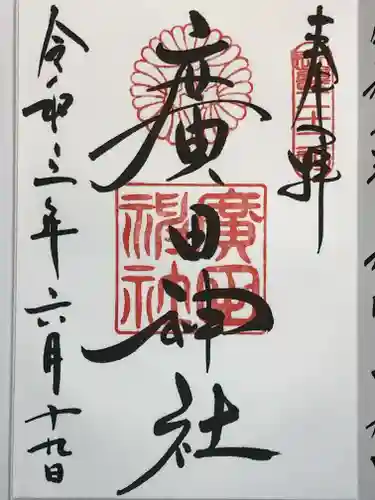 奉拝
廣田神社
廣田神社
令和三年六月十九日